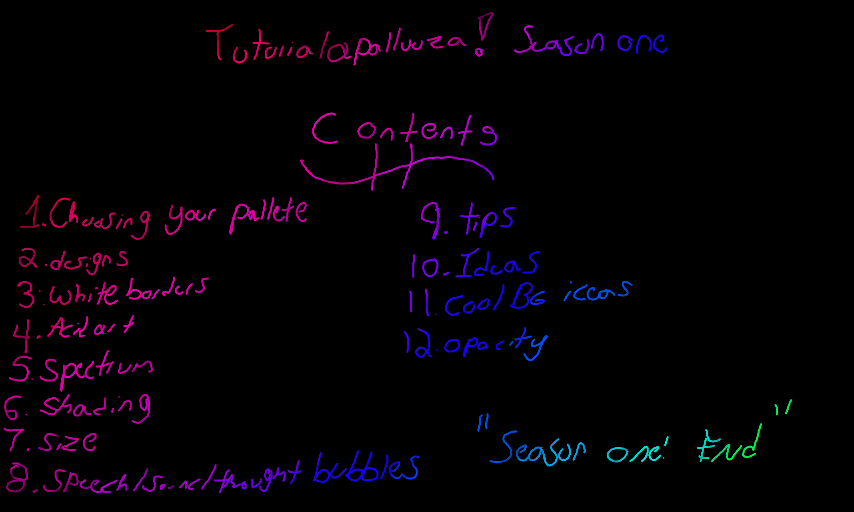 Tutorialapalluuza! Season one
Contents
1. Choosing your pallete
2. designs
3. white borders
4. Acid art
5. Spectrum
6. Shading
7. size
8. speech/sound/thought bubbles
9. tips
10. Ideas
11. Cool BG iccas
12. opacity
"Season one: End"